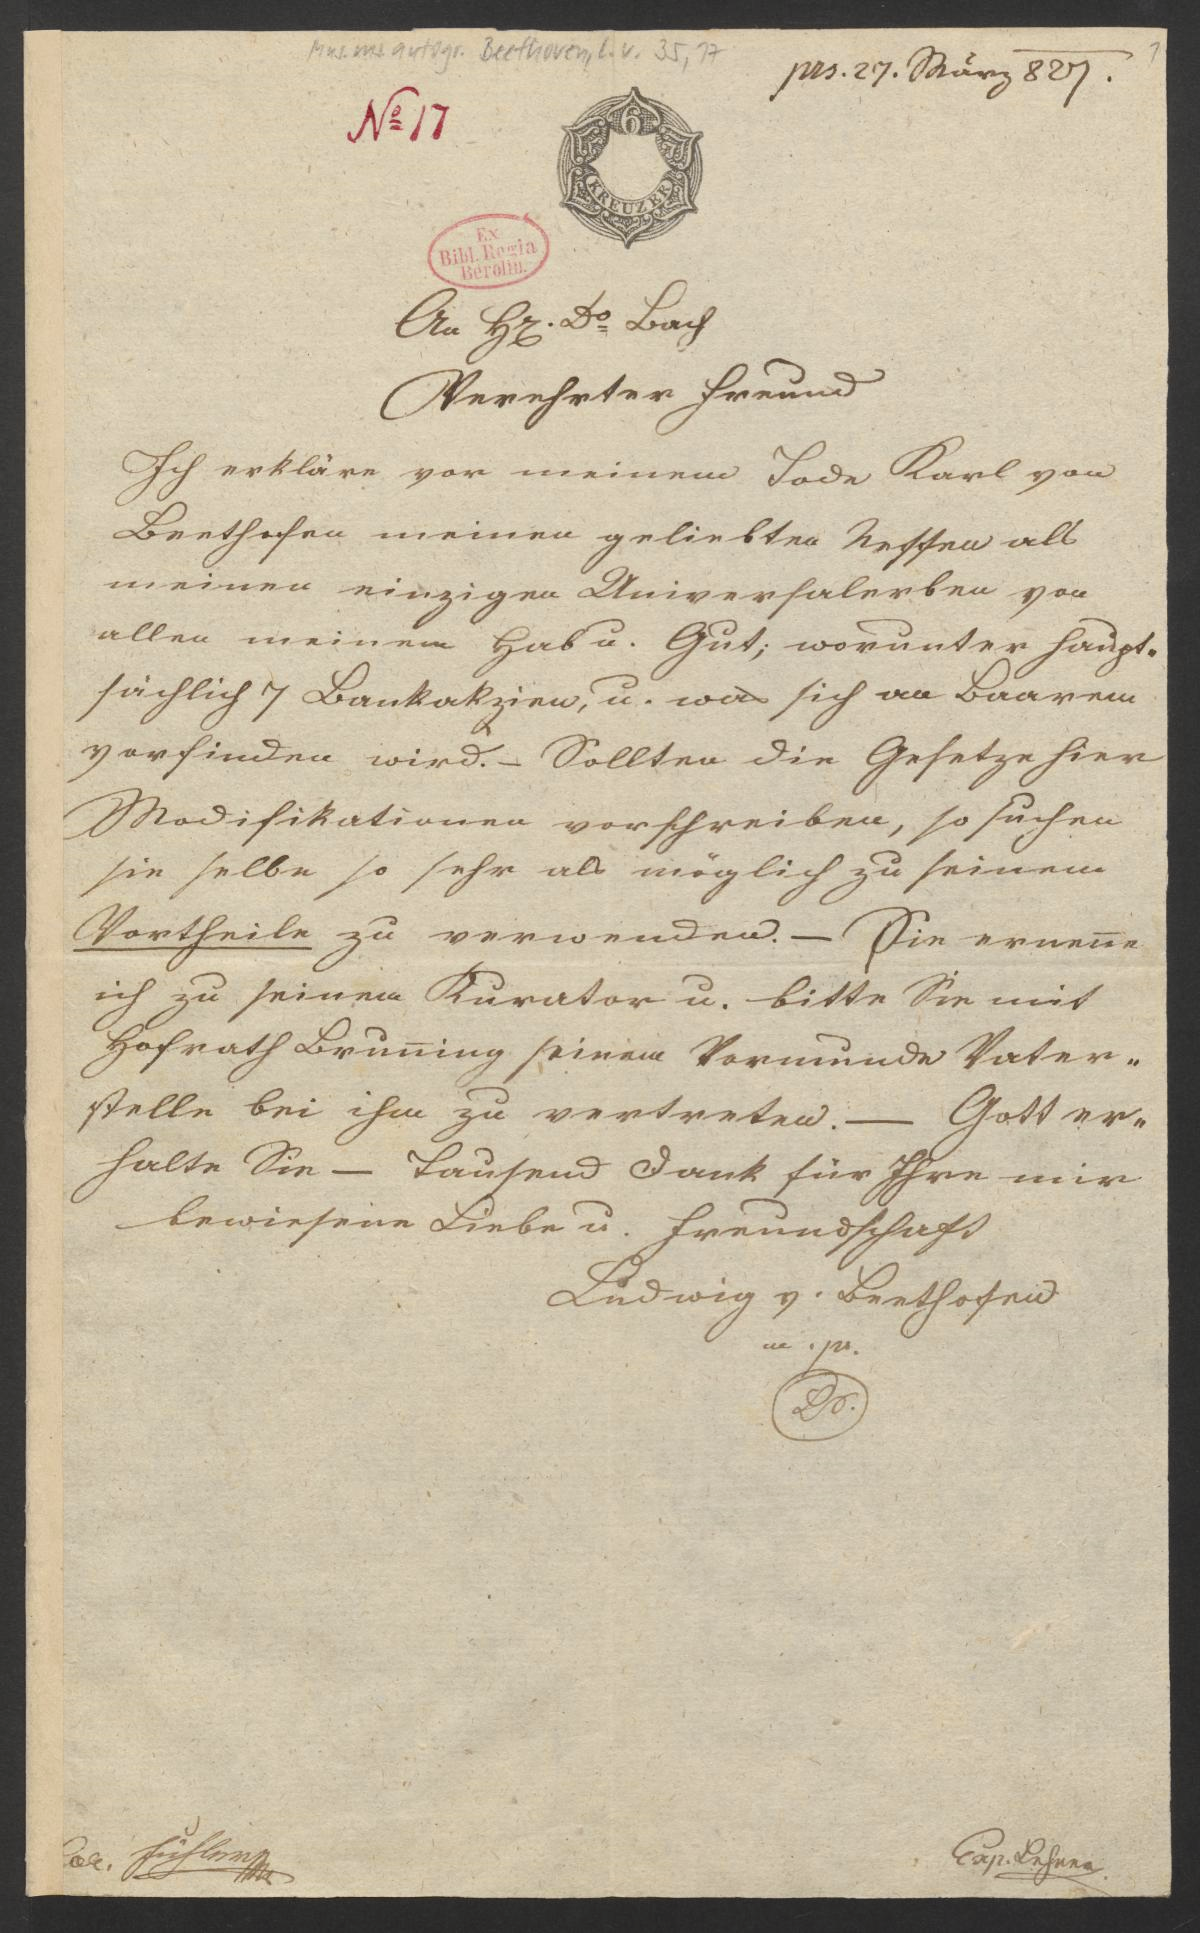 Mus. ms. autogr. Beethoven, L. v. 35, 17
prs. 27. März 827.
1
No 17
6
KREUZER
Ex
Bibl. Regia
Berolin.
An Hr. Do Bach
Verehrter Freund
Ich erkläre vor meinem Tode Karl von
Beethofen meinen geliebten Neffen als
meinen einzigen Universalerben von
allen meinem Hab u. Gut; worunter haupt-
sächlich 7 Bankakzien, u. was sich an Baarem
vorfinden wird. – Sollten die Gesetze hier
Modifikationen vorschreiben, so suchen
sie selbe so sehr als möglich zu seinem
Vortheile zu verwenden. – Sie ernen̄e
ich zu seinem Kurator u. bitte Sie mit
Hofrath Brun̄ing seinem Vormunde Vater-
stelle bei ihm zu vertreten. — Gott er-
halte Sie — Tausend Dank für Ihre mir
bewiesene Liebe u. Freundschaft
Ludwig v. Beethofen
m. p.
Cap. Lehner